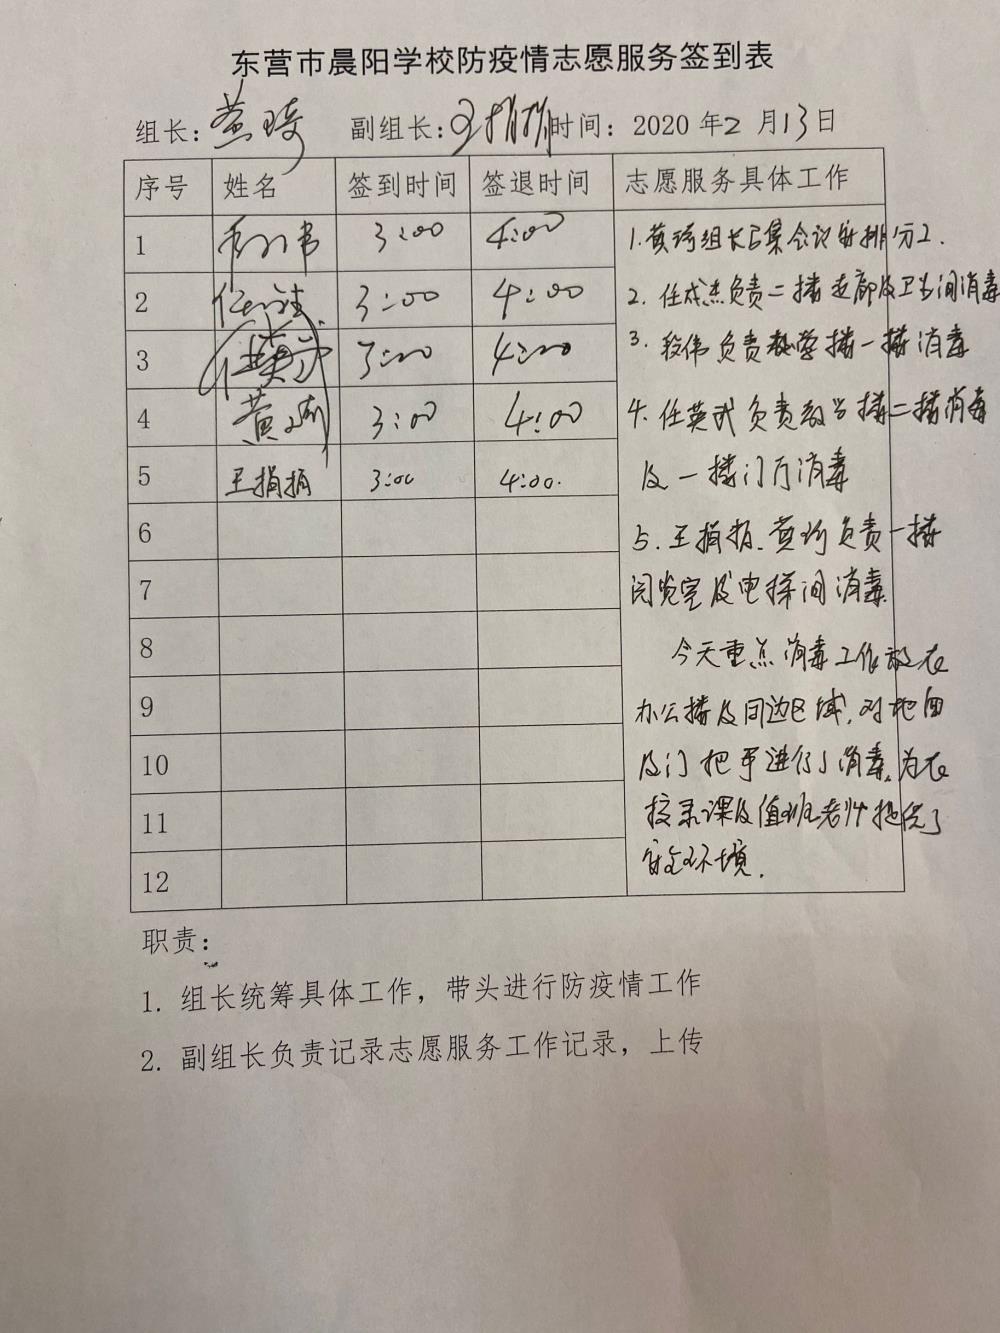 东营市晨阳学校防疫情志愿服务签到表
组长：黄琦 副组长：王捐捐 时间：2020 年2 月13日
序号 姓名 签到时间 签退时间 志愿服务具体工作
1 3:00 4:00
2 任 3:00 4:00
3 任英武 3:00 4:00
4 黄琦 3:00 4:00
5 王捐捐 3:00 4:00.
6
7
8
9
10
11
12
1.黄琦组长召集会议安排分工.
2.任成杰负责二楼走廊及卫生间消毒
3.段伟负责教学楼一楼消毒
4.任英武负责教学楼二楼消毒
及一楼门厅消毒
5.王捐捐.黄琦负责一楼
阅览室及电梯间消毒.
今天重点消毒工作放在
办公楼及周边区域,对地面
及门把手进行了消毒,为在
校录课及值班老师提供了
安全环境.
职责：
1. 组长统筹具体工作，带头进行防疫情工作
2. 副组长负责记录志愿服务工作记录，上传